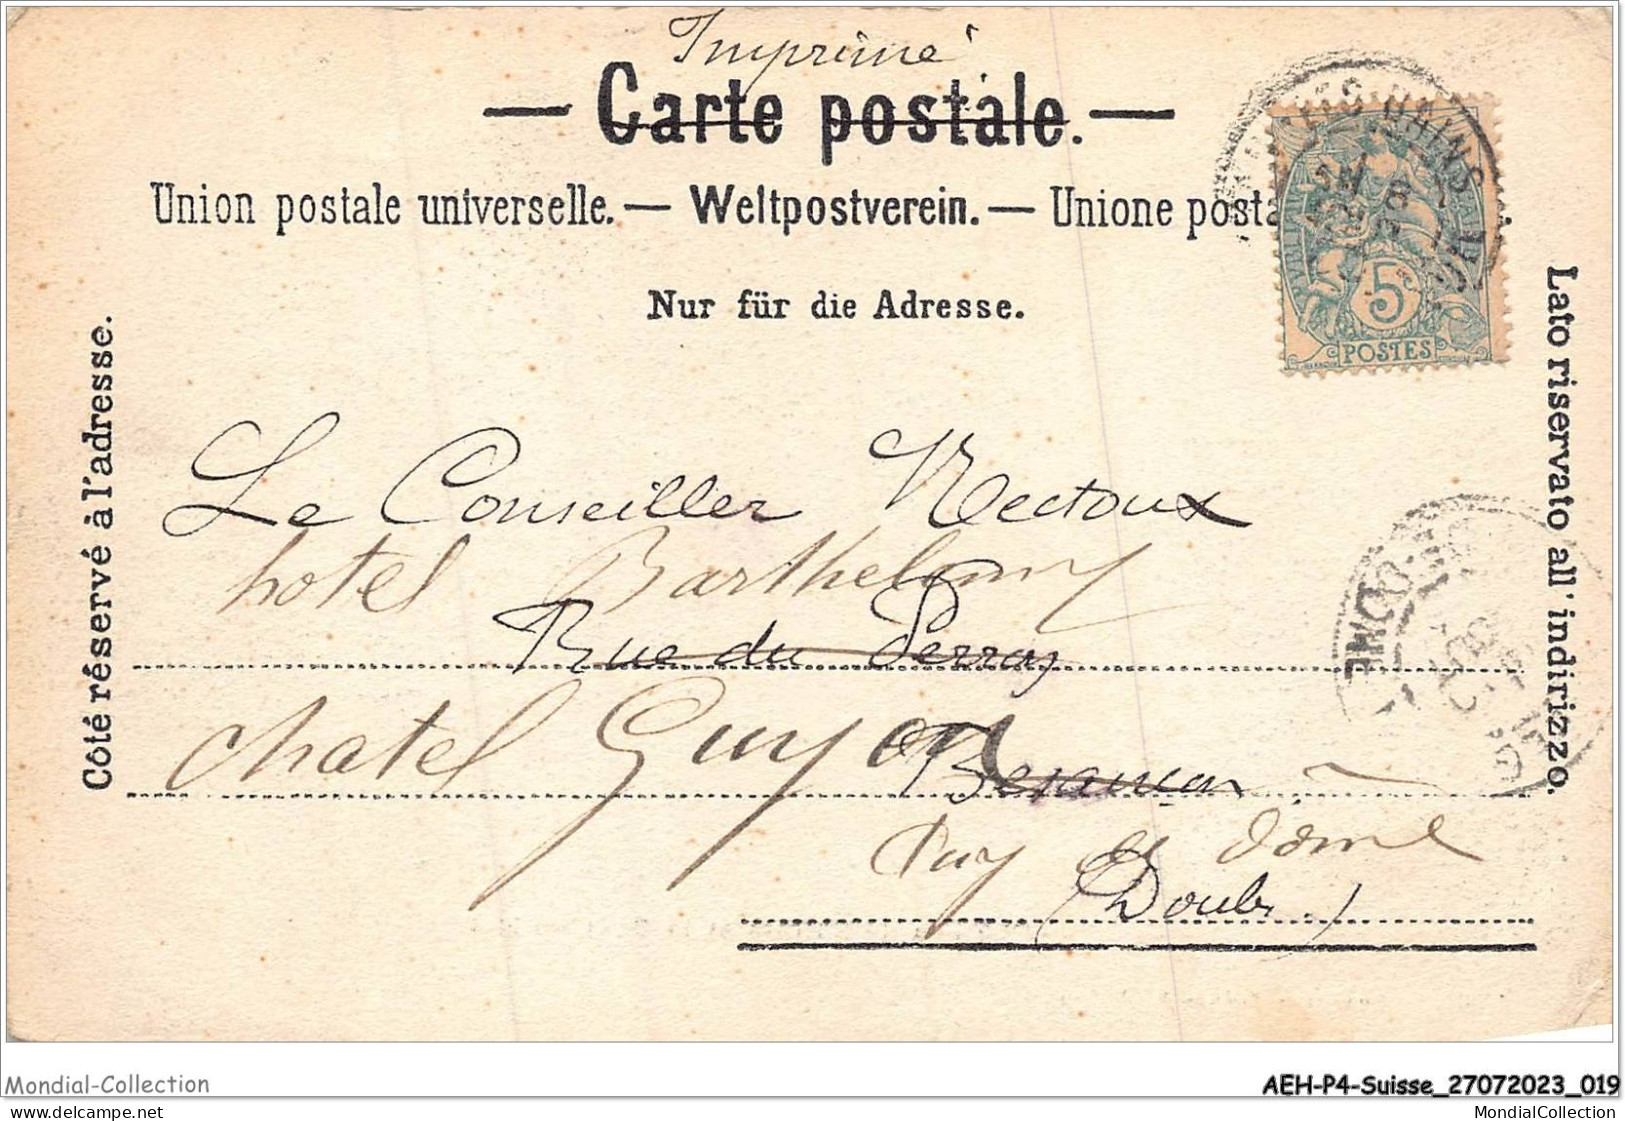 Imprimé
— Carte postale. —
Union postale universelle. — Weltpostverein. — Unione posta
Nur für die Adresse.
Côté réservé à l'adresse.
Lato riservato all' indirizzo.
5c
POSTES
BAINS
DOME
Le Conseiller Nectoux
hotel Barthelemy
Rue du Perron
chatel Guyon
Besançon
Puy de Dôme
(Doubs)
Mondial-Collection
AEH-P4-Suisse_27072023_019
delcampe.net
MondialCollection